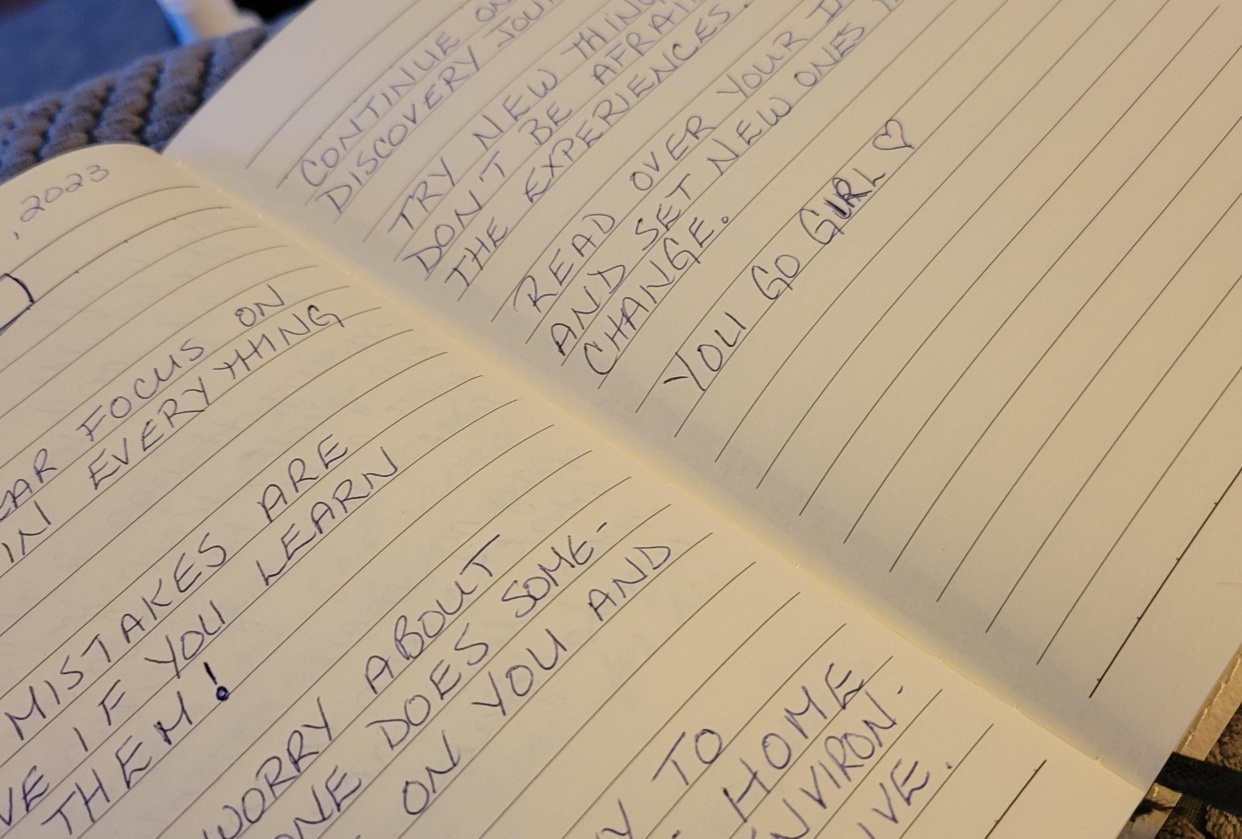 , 2023
FOCUS ON
IN EVERYTHING
MISTAKES ARE
IF YOU LEARN
THEM!
WORRY ABOUT
DOES SOME-
ON YOU AND
TO
HOME
ENVIRON.
CONTINUE
DISCOVERY
TRY NEW
DON'T BE AFRAI
THE EXPERIENCES.
READ OVER YOUR
AND SET NEW ONES
CHANGE.
YOU GO GIRL ♡